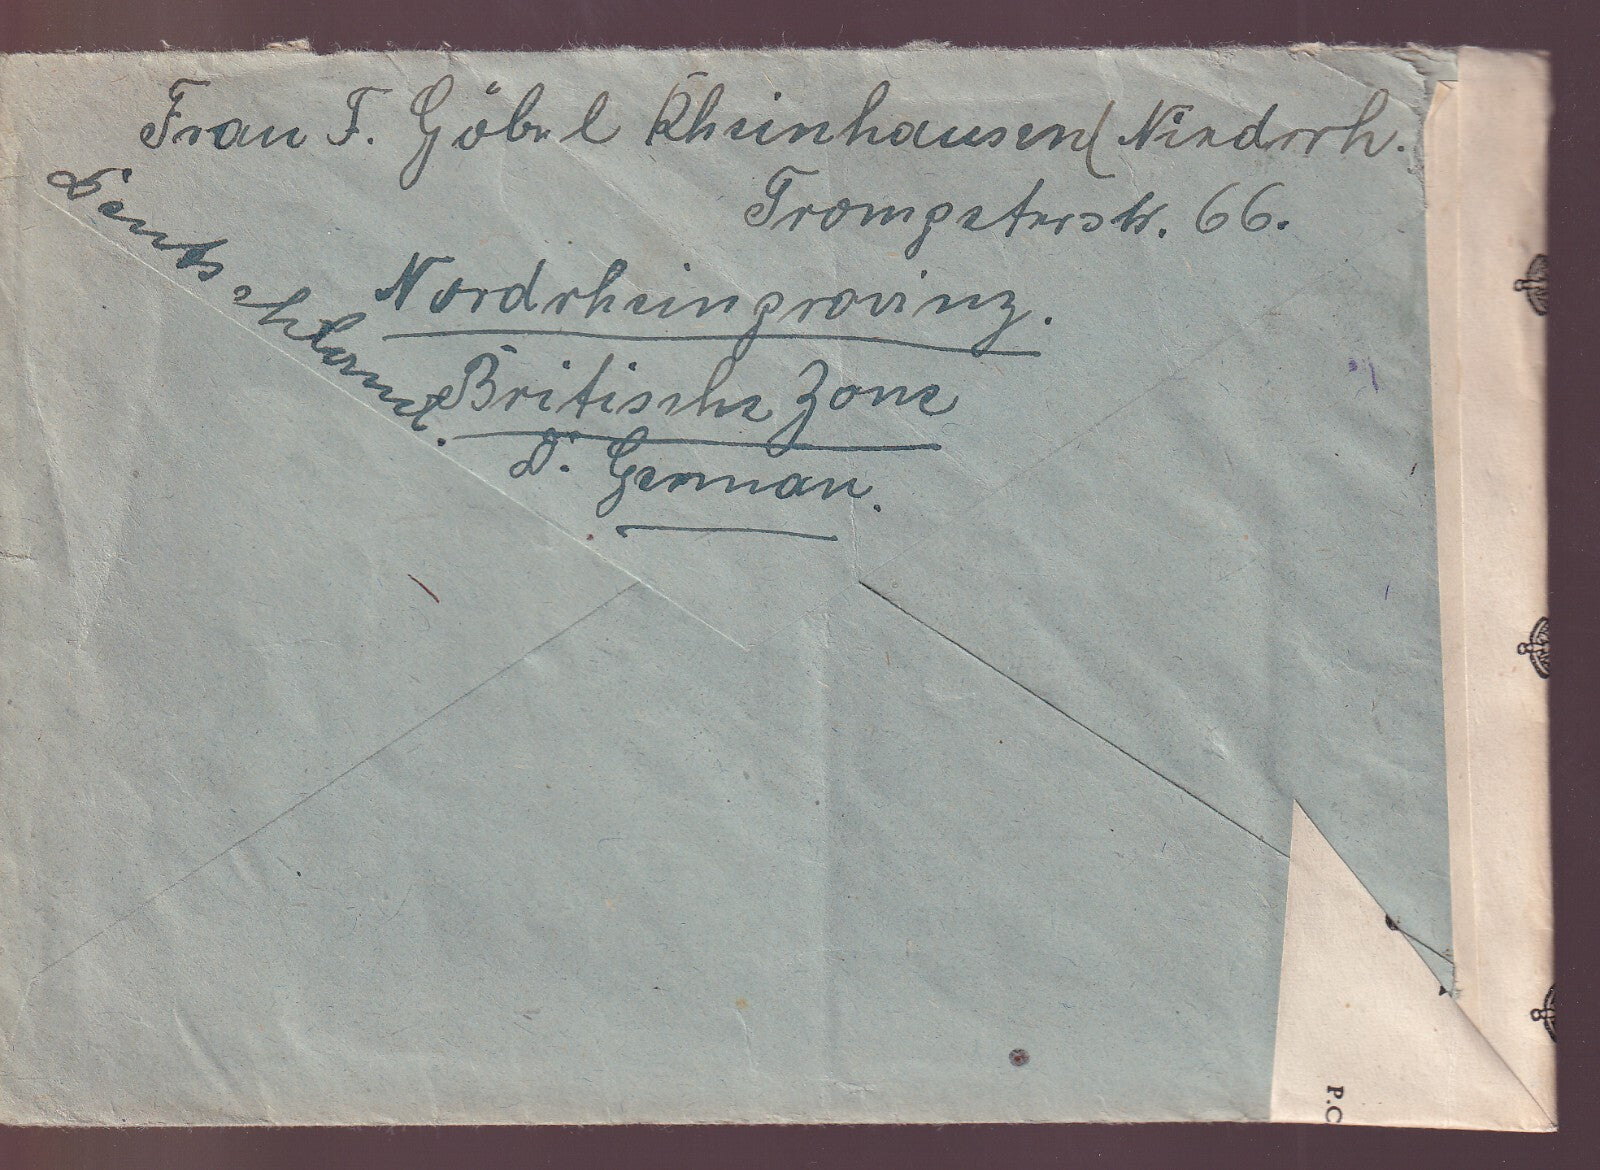 Frau F. Göbel Rheinhausen/Niederrh.
Trompeterstr. 66.
Nordrheinprovinz.
Britische Zone
D. German.
Deutschland.
P.C